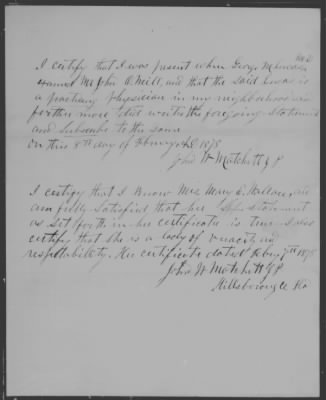 I certify that I was present when George M Lucas
examed Mr John O Neill, and that the said Lucas is
a practicing physician in my neighborhood
further more that the foregoing statement
and Subscribe to the same
on this 8th day of Febuary AD 1878
John W Matchett J P
I certify that I Know Mrs Mary E. Wallace and
am fully Satisfied that her Statement
as Set forth in her certificate is true I also
certify that she is a lady of veracity and
respectability. Her certificate dated Febuy 7th 1878
John W Matchett J P
Hillsborough Co Fla